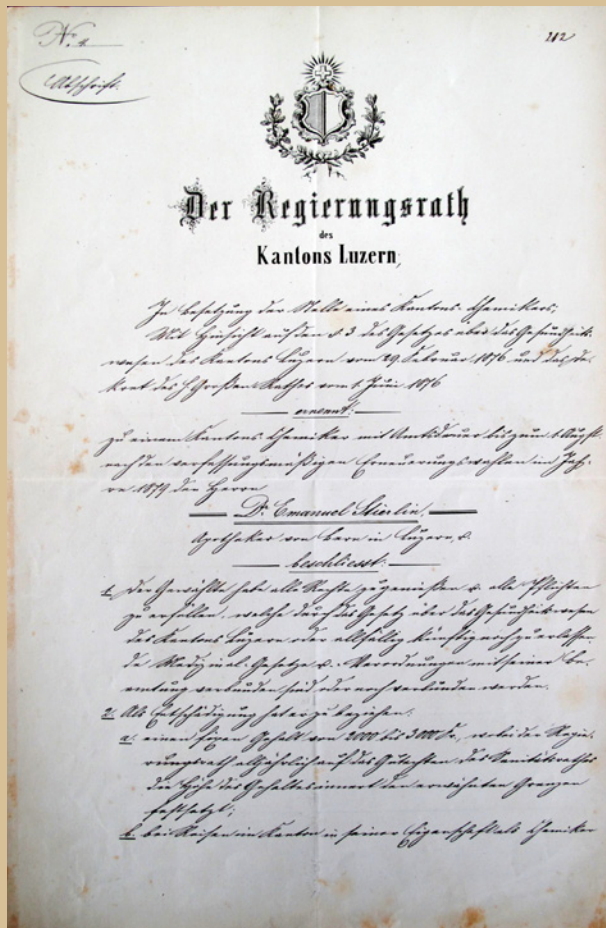 Nr.
212
Abschrift.
Der Regierungsrath
des
Kantons Luzern,
In Besetzung der Stelle eines Kantons-Chemikers;
Mit Hinsicht auf den § 3 des Gesetzes über das Gesundheits-
wesen des Kantons Luzern vom 29. Februar 1876 und das De-
kret des h. Großen Rathes vom 1. Juni 1876
ernennt:
zu einem Kantons-Chemiker mit Amtsdauer bis zum 1. August
nach den verfassungsmäßigen Erneuerungswahlen im Jah-
re 1879 den Herrn
Dr. Emanuel Stierlin,
Apotheker von Bern in Luzern, u.
beschliesst:
1. Der Gewählte habe alle Rechte zu genießen u. alle Pflichten
zu erfüllen, welche durch das Gesetz über das Gesundheitswesen
des Kantons Luzern oder allfällig künftig noch zu erlassen-
de Medizinal-Gesetze u. Verordnungen mit seiner Be-
amtung verbunden sind oder noch verbunden werden.
2. Als Entschädigung hat er zu beziehen:
a. einen fixen Gehalt von 2000 bis 3000 Fr., wobei der Regie-
rungsrath alljährlich auf das Gutachten des Sanitätsrathes
die Höhe des Gehaltes innert den erwähnten Grenzen
festsetzt;
b. bei Reisen im Kanton in seiner Eigenschaft als Chemiker